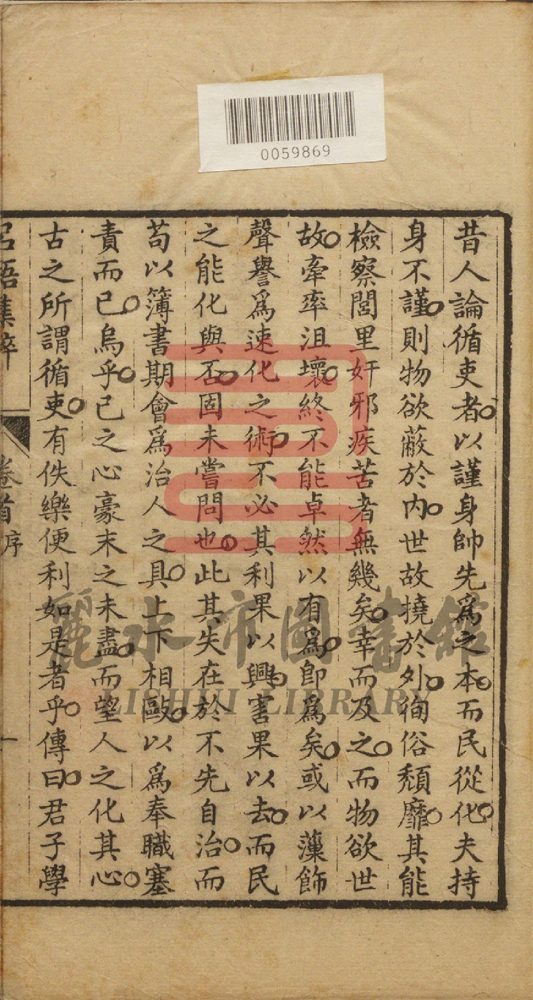 0059869
昔人論循吏者以謹身帥先爲之本而民從化夫持
身不謹則物欲蔽於內世故撓於外徇俗頹靡其能
檢察閭里奸邪疾苦者無幾矣幸而及之而物欲世
故牽率沮壞終不能卓然以有爲卽爲矣或以藻飾
聲譽爲速化之術不必其利果以興害果以去而民
之能化與否固未嘗問也此其失在於不先自治而
苟以簿書期會爲治人之具上下相毆以爲奉職塞
責而已烏乎已之心豪末之未盡而望人之化其心
古之所謂循吏有佚樂便利如是者乎傳曰君子學
呂語集粹 卷首 序 一
麗水市圖書館
LISHUI LIBRARY